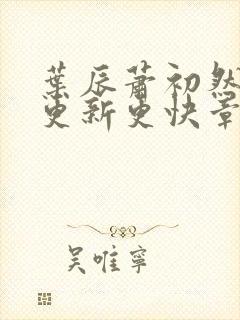 葉辰蕭初然
更新更快章
吴唯寧